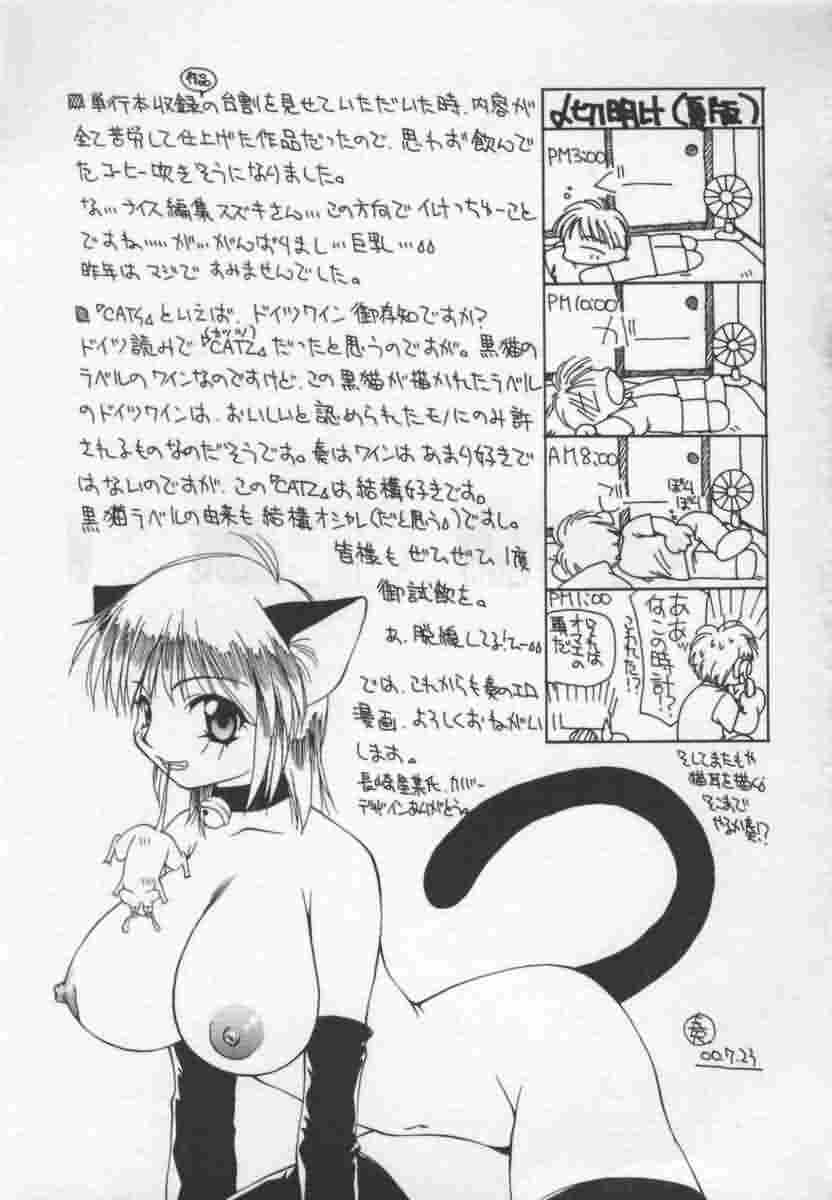 作品
▨単行本収録の台割を見せていただいた時、内容が
全て苦労して仕上げた作品だったので、思わず飲んで
たコーヒー吹きそうになりました。
な…ライス編集スズキさん…この方向でイルナっちゅーこと
ですね……が…がんばりまし…巨乳…
昨年はマジですみませんでした。
▨『CATZ』といえば、ドイツワイン御存知ですか?
ドイツ読みで『CATZ』だったと思うのですが。黒猫の
ラベルのワインなのですけど、この黒猫が描かれたラベル
のドイツワインは、おいしいと認められたモノにのみ許
されるものなのだそうです。奏はワインはあまり好きで
はないのですが、この『CATZ』は結構好きです。
黒猫ラベルの由来も結構オシャレ(だと思う)ですし。
皆様もぜひぜひ1度
御試飲を。
あ、脱線してる!
では、これからも奏のエロ
漫画、よろしくおねがい
します。
長崎 氏、カバー
デザインありがとう。
〆切明け(夏版)
PM3:00
PM10:00
ガー
AM8:00
ぽり
ぽり
PM1:00
ああッ
なこの時計!?
こわれた!?
オマエの
頭だ
そしてまたもや
猫耳を描く
そこまで
やるか奏!?
奏
00.7.23